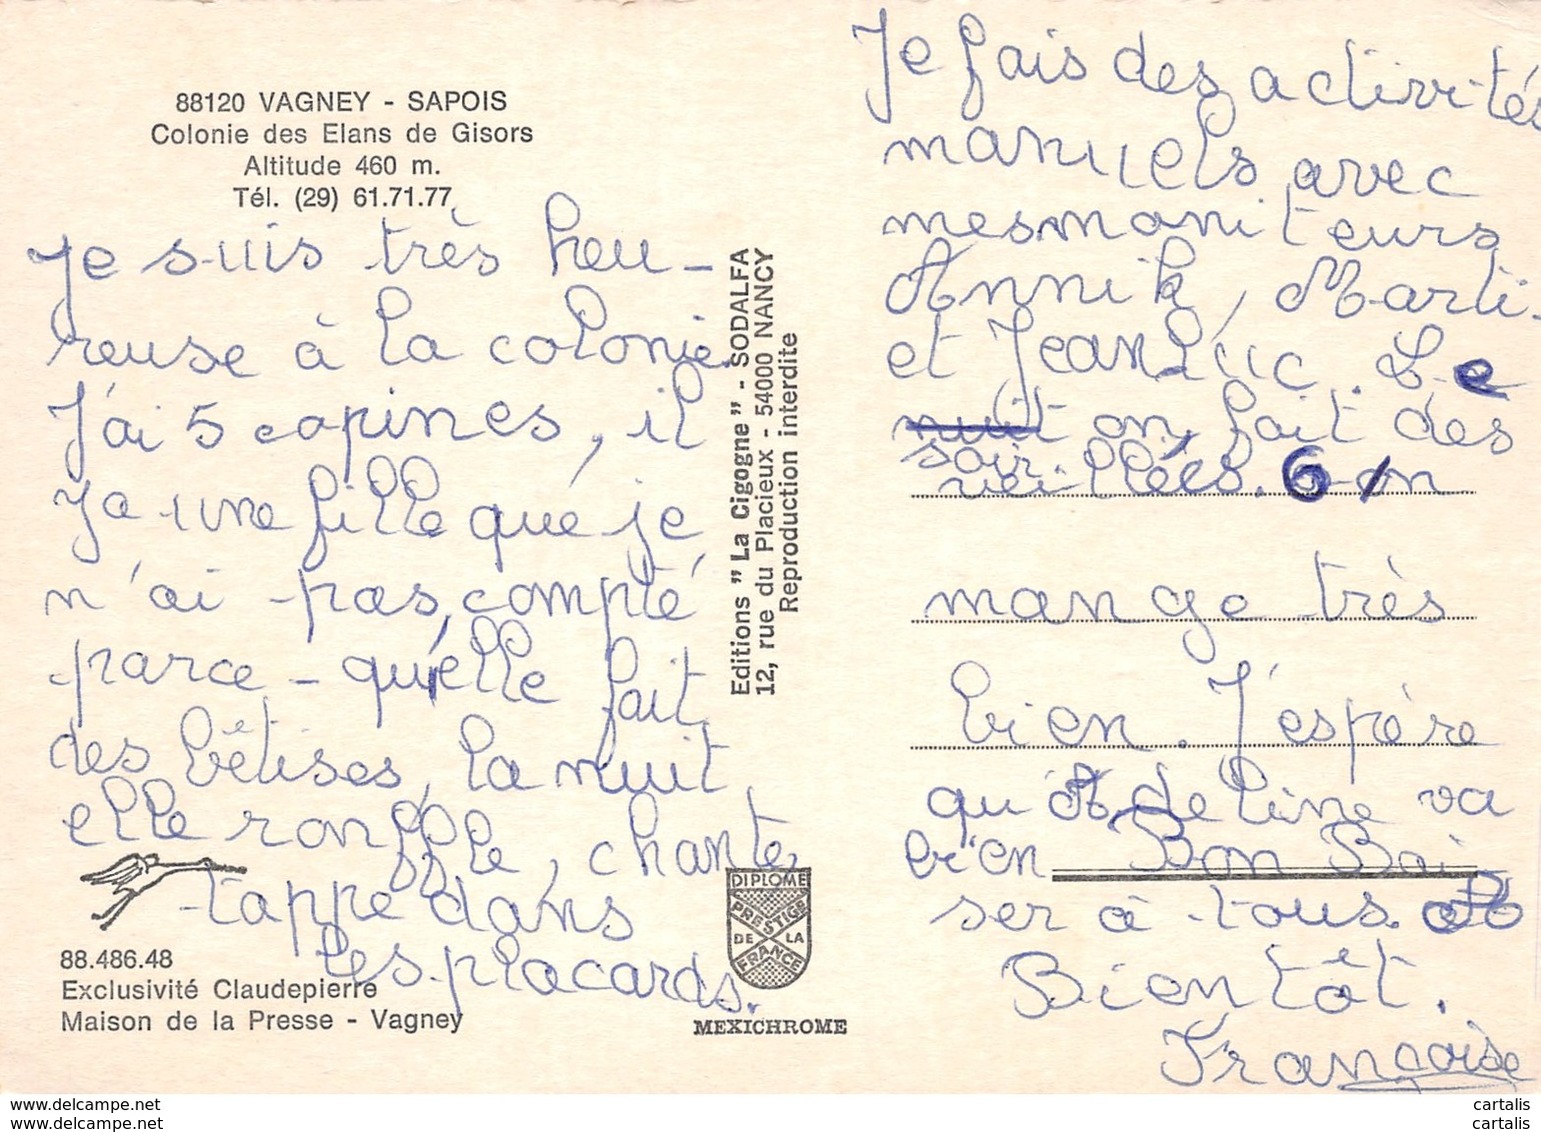 88120 VAGNEY - SAPOIS
Colonie des Elans de Gisors
Altitude 460 m.
Tél. (29) 61.71.77
Je suis très heu-
reuse à la colonie.
J'ai 5 copines, il
ya une fille que je
n'ai pas compté
parce - qu'elle fait
des bêtises, la nuit
elle ronffle, chante,
tappe dans
les placards.
88.486.48
Exclusivité Claudepierre
Maison de la Presse - Vagney
Editions " La Cigogne " - SODALFA
12, rue du Placieux - 54000 NANCY
Reproduction interdite
DIPLOME
PRESTIGE
DE LA
FRANCE
MEXICHROME
Je fais des activités
manuels avec
mes moniteurs
Annik, Marti-
et Jean-Luc. Le
nuit on fait des
soir
veillées. on
mange très
bien. J'espère
qu'Adeline va
bien Bon Bai
ser à tous.
Bientôt.
Françoise
cartalis
cartalis
www.delcampe.net
www.delcampe.net